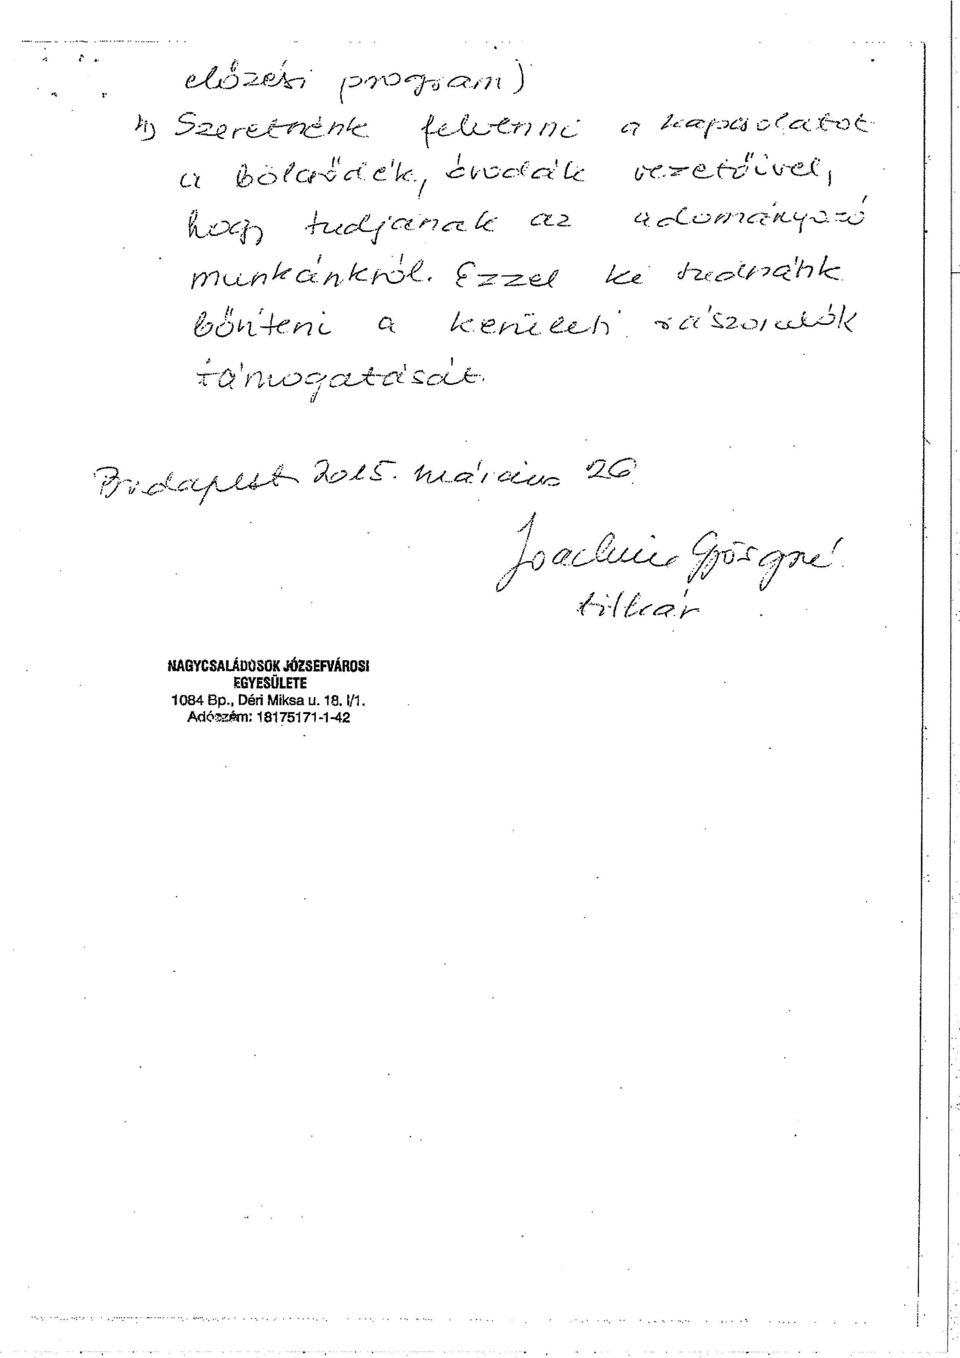 előzési program)
4) Szeretnénk felvenni a kapcsolatot
a bölcsődék, óvodák vezetőivel,
hogy tudjanak az adományozó
munkánkról. Ezzel ki tudnánk
bőviteni a kerületi rászorulók
támogatását.
Budapest 2015. március 26
Joachim Györgyné
titkár
NAGYCSALÁDOSOK JÓZSEFVÁROSI
EGYESÜLETE
1084 Bp., Déri Miksa u. 18. I/1.
Adószám: 18175171-1-42